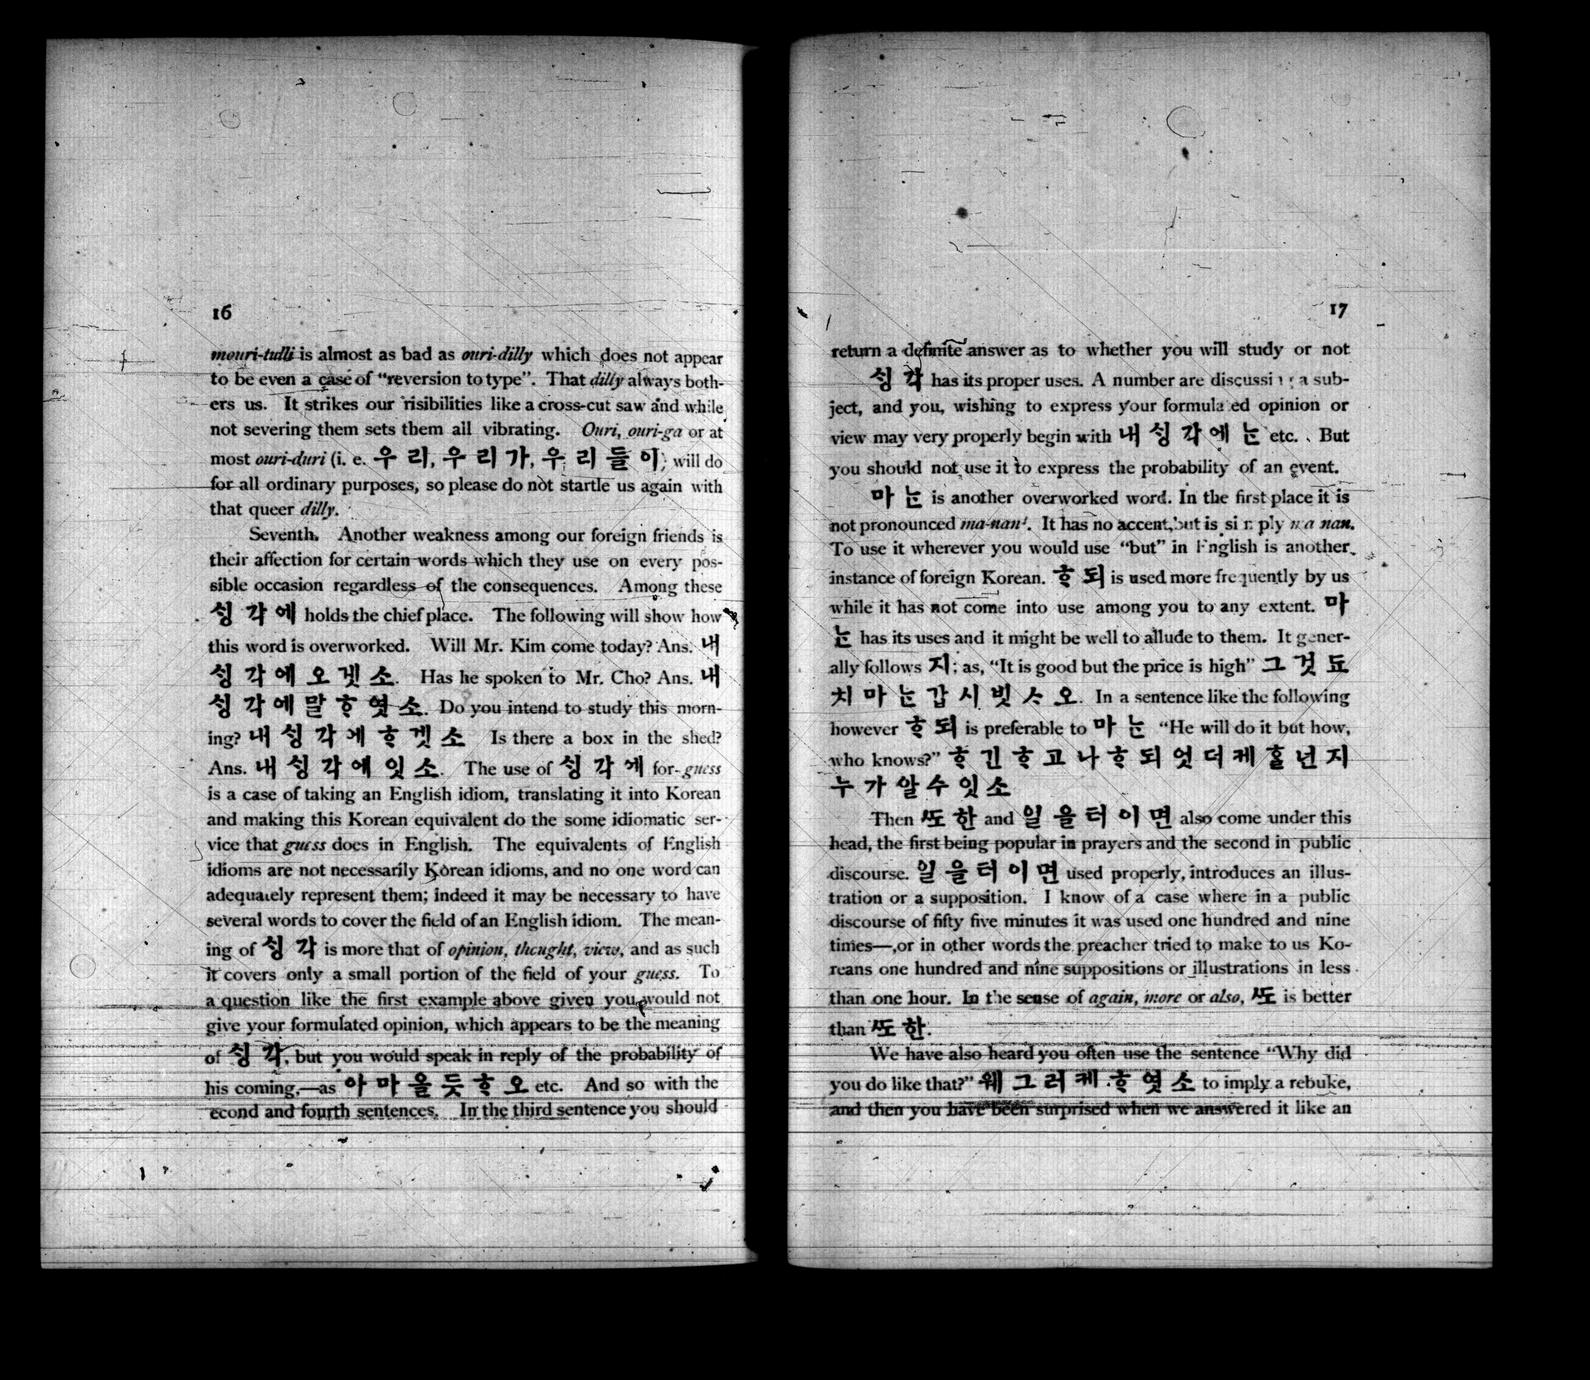 16
mouri-tulli is almost as bad as ouri-dilly which does not appear
to be even a case of “reversion to type”. That dilly always both-
ers us. It strikes our risibilities like a cross-cut saw and while
not severing them sets them all vibrating. Ouri, ouri-ga or at
most ouri-duri (i. e. 우리, 우리가, 우리들이, will do
for all ordinary purposes, so please do not startle us again with
that queer dilly.
Seventh. Another weakness among our foreign friends is
their affection for certain words which they use on every pos-
sible occasion regardless of the consequences. Among these
싱각에 holds the chief place. The following will show how
this word is overworked. Will Mr. Kim come today? Ans. 내
싱각에오겟소. Has he spoken to Mr. Cho? Ans. 내
싱각에말ᄒᆞ엿소. Do you intend to study this morn-
ing? 내싱각에ᄒᆞ겟소 Is there a box in the shed?
Ans. 내싱각에잇소. The use of 싱각에 for guess
is a case of taking an English idiom, translating it into Korean
and making this Korean equivalent do the some idiomatic ser-
vice that guess does in English. The equivalents of English
idioms are not necessarily Korean idioms, and no one word can
adequately represent them; indeed it may be necessary to have
several words to cover the field of an English idiom. The mean-
ing of 싱각 is more that of opinion, thought, view, and as such
it covers only a small portion of the field of your guess. To
a question like the first example above given you would not
give your formulated opinion, which appears to be the meaning
of 싱각, but you would speak in reply of the probability of
his coming,—as 아마올듯ᄒᆞ오 etc. And so with the
econd and fourth sentences. In the third sentence you should
17
return a definite answer as to whether you will study or not
싱각 has its proper uses. A number are discussing a sub-
ject, and you, wishing to express your formulated opinion or
view may very properly begin with 내싱각에ᄂᆞᆫ etc. But
you should not use it to express the probability of an event.
마ᄂᆞᆫ is another overworked word. In the first place it is
not pronounced ma-nan'. It has no accent, but is simply ma nan.
To use it wherever you would use “but” in English is another
instance of foreign Korean. ᄒᆞ되 is used more frequently by us
while it has not come into use among you to any extent. 마
ᄂᆞᆫ has its uses and it might be well to allude to them. It gener-
ally follows 지; as, “It is good but the price is high” 그것됴
치마ᄂᆞᆫ갑시빗ᄉᆞ오. In a sentence like the following
however ᄒᆞ되 is preferable to 마ᄂᆞᆫ “He will do it but how,
who knows?” ᄒᆞ긴ᄒᆞ고나ᄒᆞ되엇더케ᄒᆞᆯ넌지
누가알수잇소
Then ᄯᅩ한 and 일을터이면 also come under this
head, the first being popular in prayers and the second in public
discourse. 일을터이면 used properly, introduces an illus-
tration or a supposition. I know of a case where in a public
discourse of fifty five minutes it was used one hundred and nine
times—,or in other words the preacher tried to make to us Ko-
reans one hundred and nine suppositions or illustrations in less
than one hour. In the sense of again, more or also, ᄯᅩ is better
than ᄯᅩ한.
We have also heard you often use the sentence “Why did
you do like that?” 웨그러케ᄒᆞ엿소 to imply a rebuke,
and then you have been surprised when we answered it like an